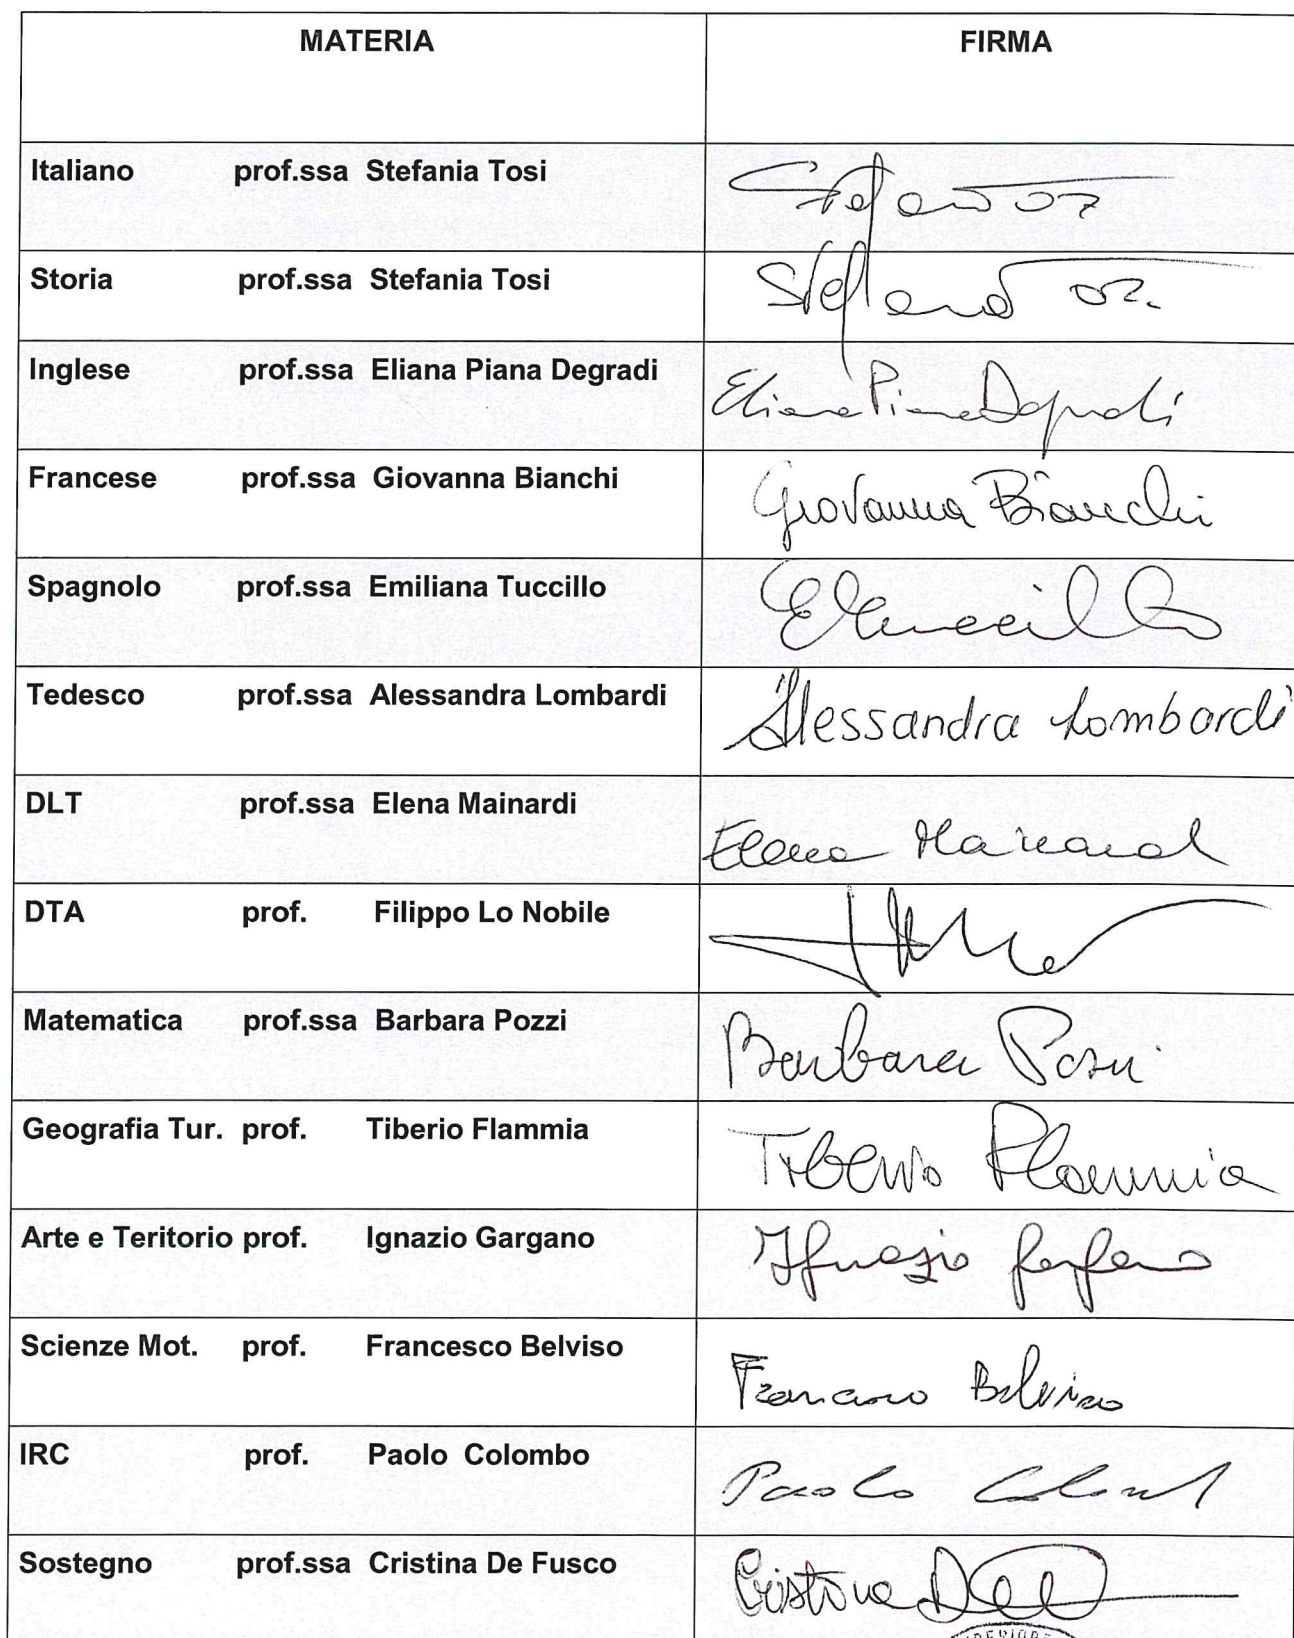 MATERIA FIRMA
Italiano prof.ssa Stefania Tosi
Storia prof.ssa Stefania Tosi
Inglese prof.ssa Eliana Piana Degradi Eliana Piana Degradi
Francese prof.ssa Giovanna Bianchi Giovanna Bianchi
Spagnolo prof.ssa Emiliana Tuccillo
Tedesco prof.ssa Alessandra Lombardi Alessandra Lombardi
DLT prof.ssa Elena Mainardi Elena Mainardi
DTA prof. Filippo Lo Nobile
Matematica prof.ssa Barbara Pozzi Barbara Pozzi
Geografia Tur. prof. Tiberio Flammia Tiberio Flammia
Arte e Teritorio prof. Ignazio Gargano Ignazio Gargano
Scienze Mot. prof. Francesco Belviso Francesco Belviso
IRC prof. Paolo Colombo Paolo Colombo
Sostegno prof.ssa Cristina De Fusco Cristina